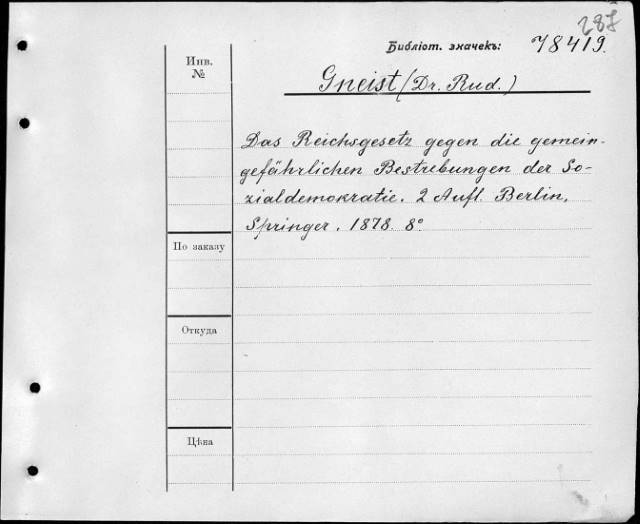 287
Библіот. значекъ: 78419.
Инв.
№
Gneist (Dr. Rud.)
Das Reichsgesetz gegen die gemein-
gefährlichen Bestrebungen der So-
zialdemokratie. 2 Aufl. Berlin,
Springer. 1878. 8°
По заказу
Откуда
Цѣна